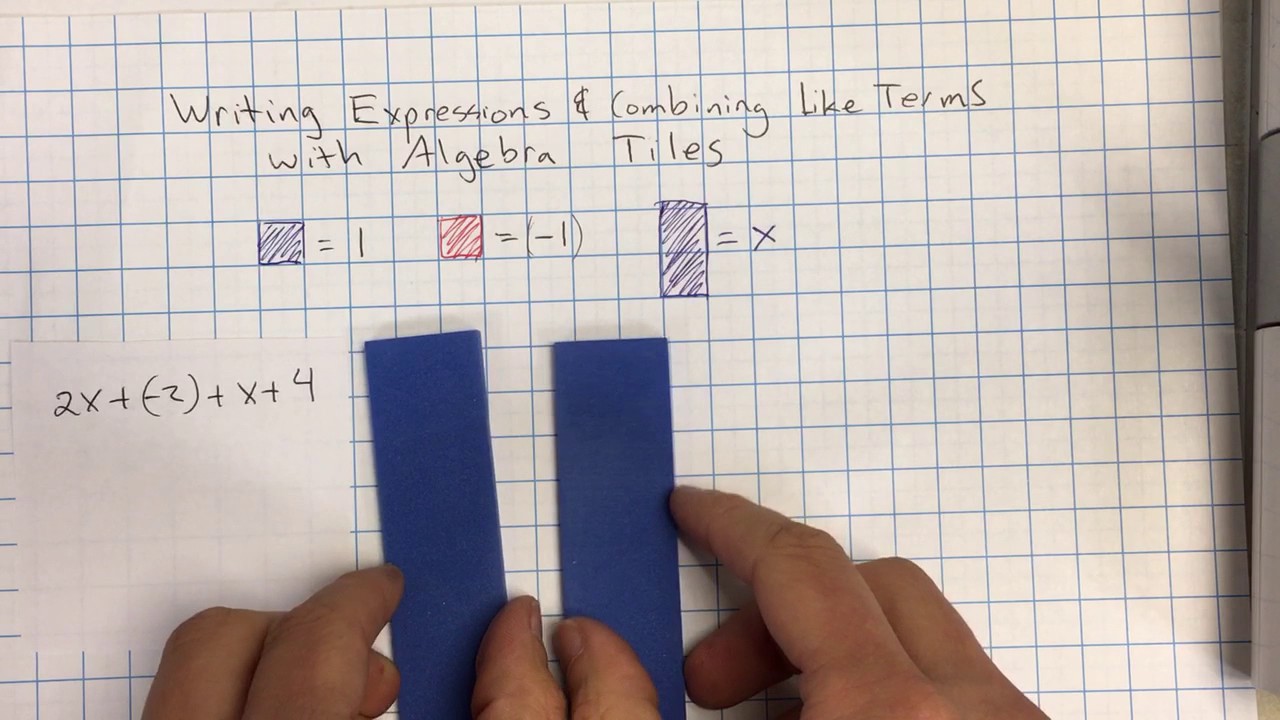 Writing Expressions & Combining Like Terms
with Algebra Tiles
= 1 = (-1) = x
2x + (-2) + x + 4